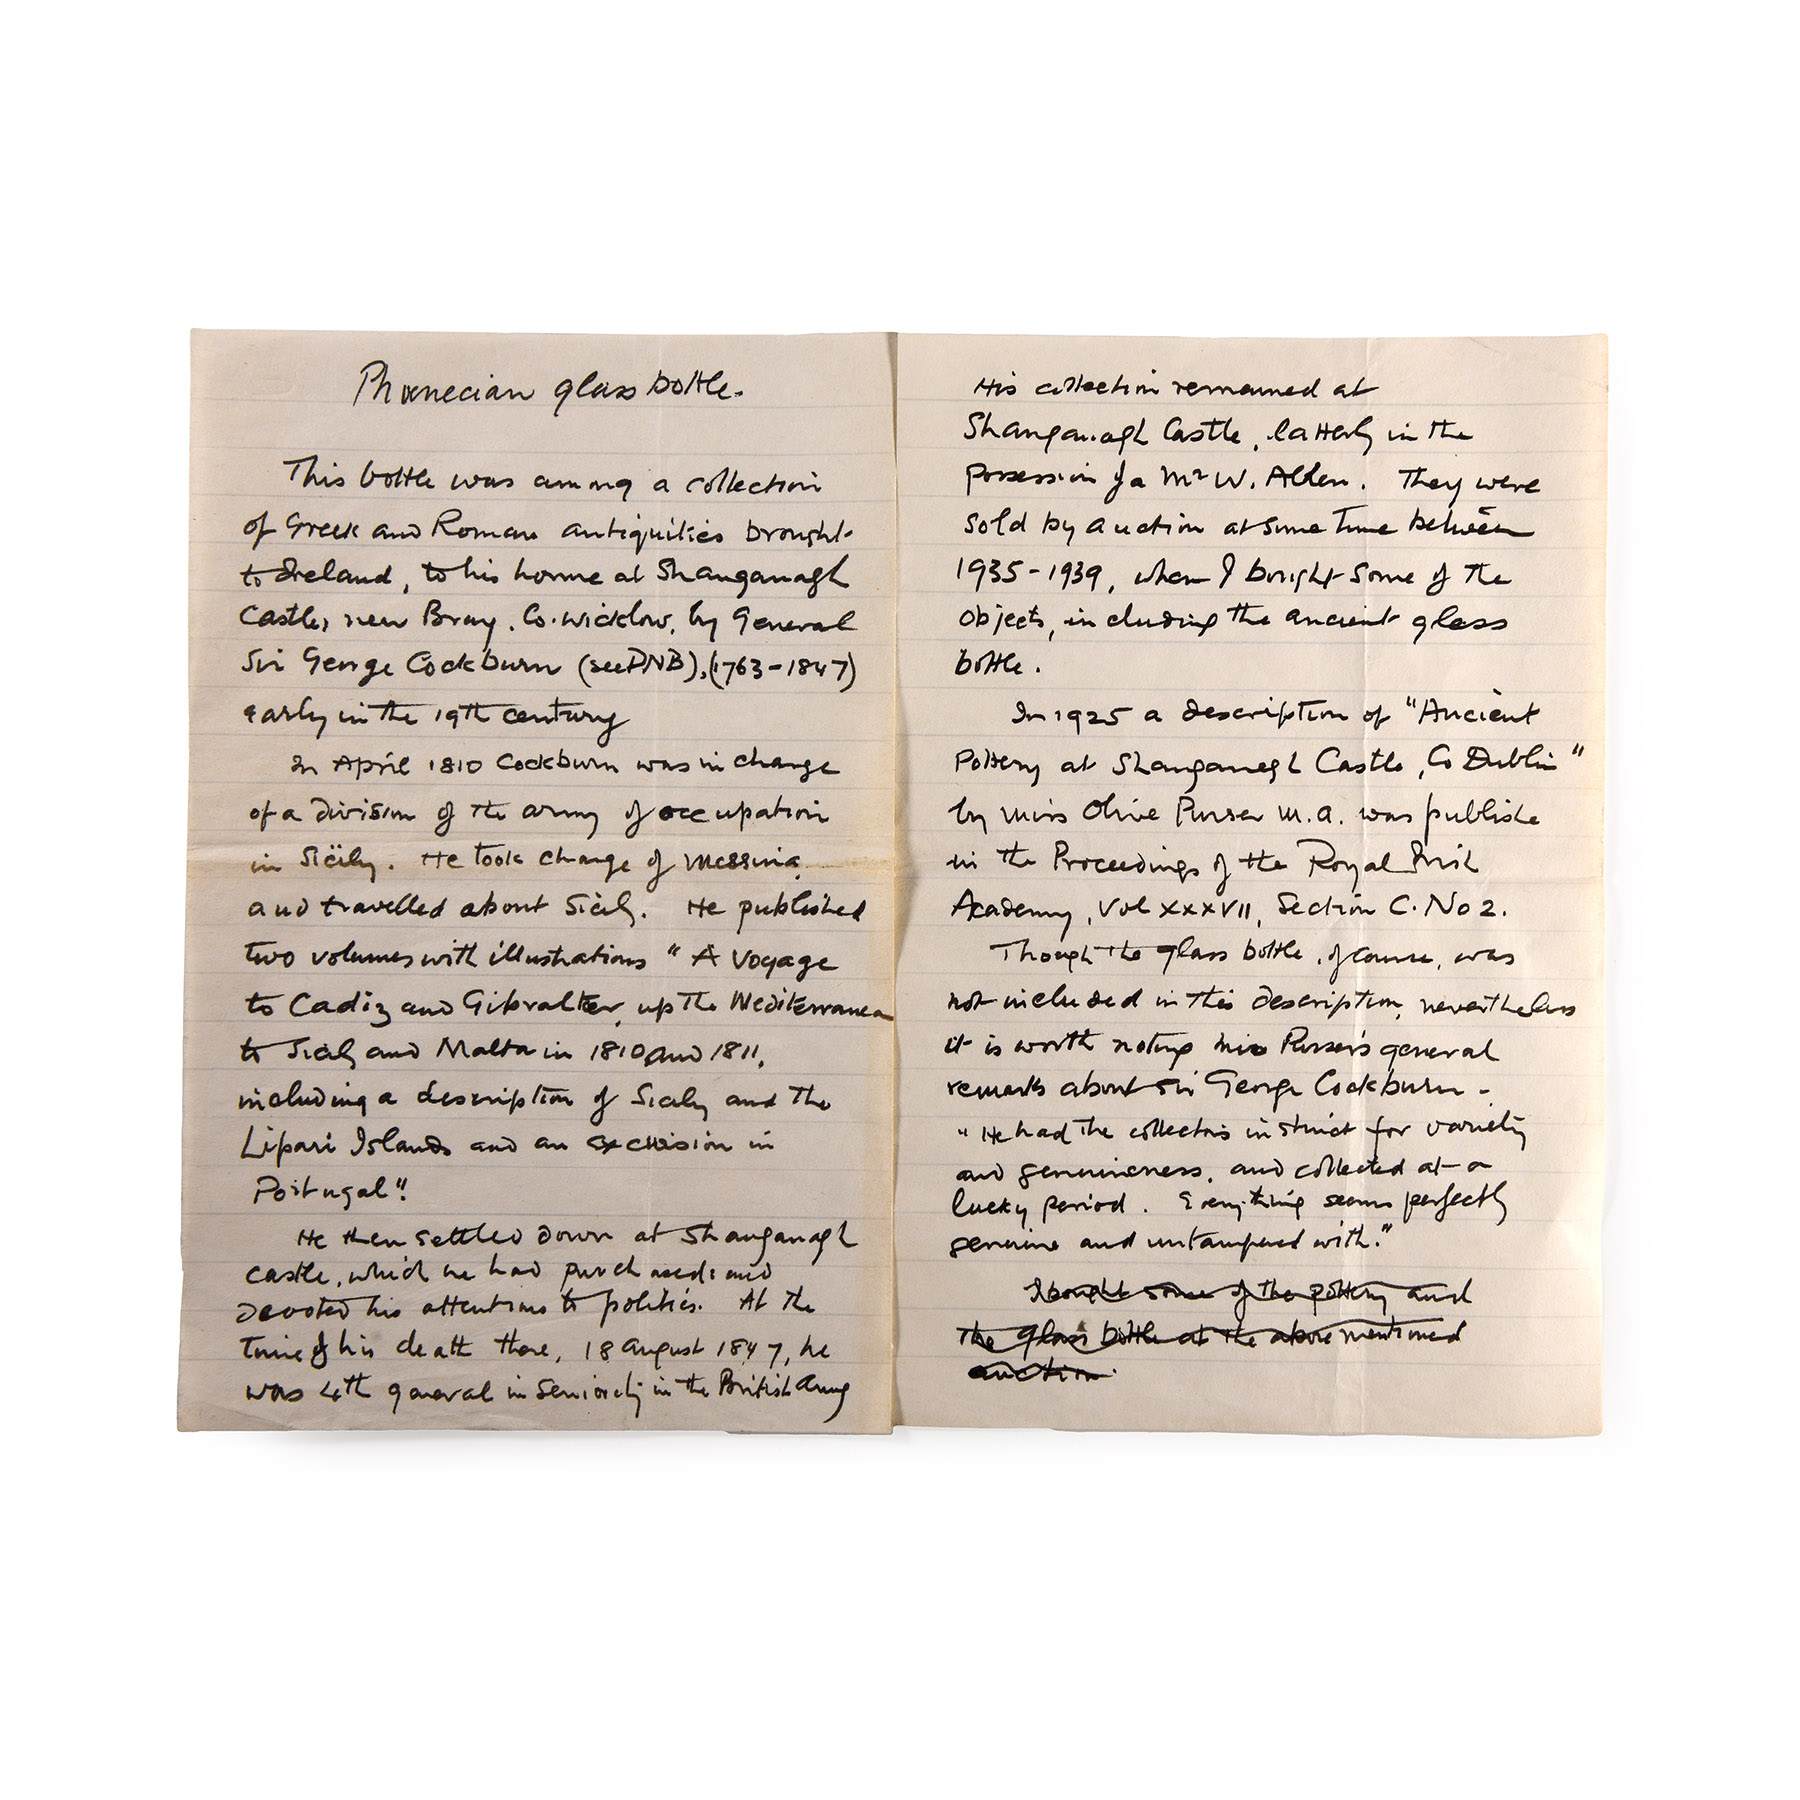 Phoenecian glass bottle.
This bottle was among a collection
of Greek and Roman antiquities brought
to Ireland, to his home at Shanganagh
Castle, near Bray, Co. Wicklow, by General
Sir George Cockburn (see DNB), (1763-1847)
early in the 19th century
In April 1810 Cockburn was in charge
of a division of the army of occupation
in Sicily. He took charge of Messina,
and travelled about Sicily. He published
two volumes with illustrations "A Voyage
to Cadiz and Gibralter, up the Mediterranean
to Sicily and Malta in 1810 and 1811,
including a description of Sicily and the
Lipari Islands and an excursion in
Portugal".
He then settled down at Shanganagh
Castle, which he had purchased and
devoted his attentions to politics. At the
time of his death there, 18 August 1847, he
was 4th general in seniority in the British Army
His collection remained at
Shanganagh Castle, latterly in the
possession of a Mr W. Alden. They were
sold by auction at some time between
1935-1939, when I bought some of the
objects, including the ancient glass
bottle.
In 1925 a description of "Ancient
Pottery at Shanganagh Castle, Co Dublin"
by Miss Olive Purser M.A. was publishe
in the Proceedings of the Royal Irish
Academy, Vol XXXVII, Section C. No 2.
Though the glass bottle, of course, was
not included in this description, nevertheless
it is worth noting Miss Purser's general
remarks about Sir George Cockburn -
"He had the collectors instinct for variety
and genuineness, and collected at a
lucky period. Everything seems perfectly
genuine and untampered with."
I bought some of the pottery and
the glass bottle at the above mentioned
auction.